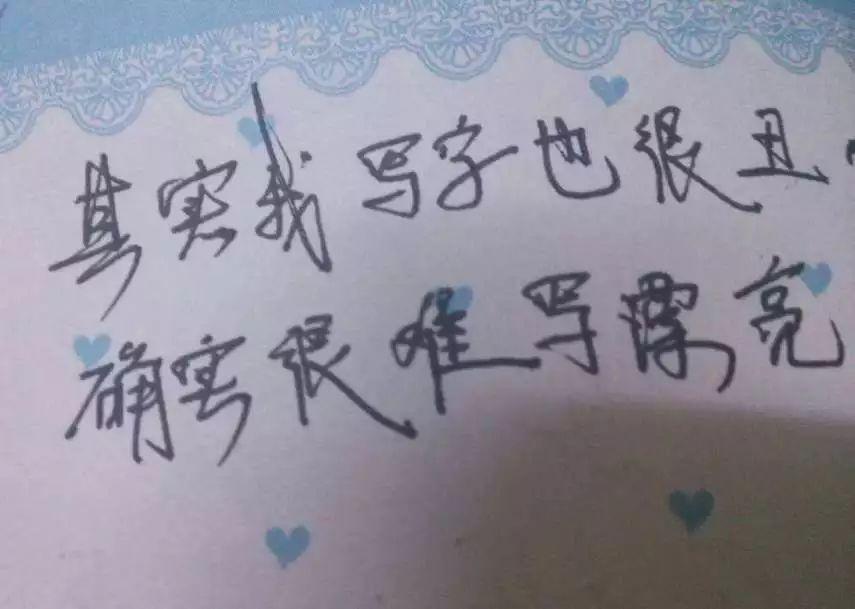 其实我写字也很丑.
确实很难写漂亮